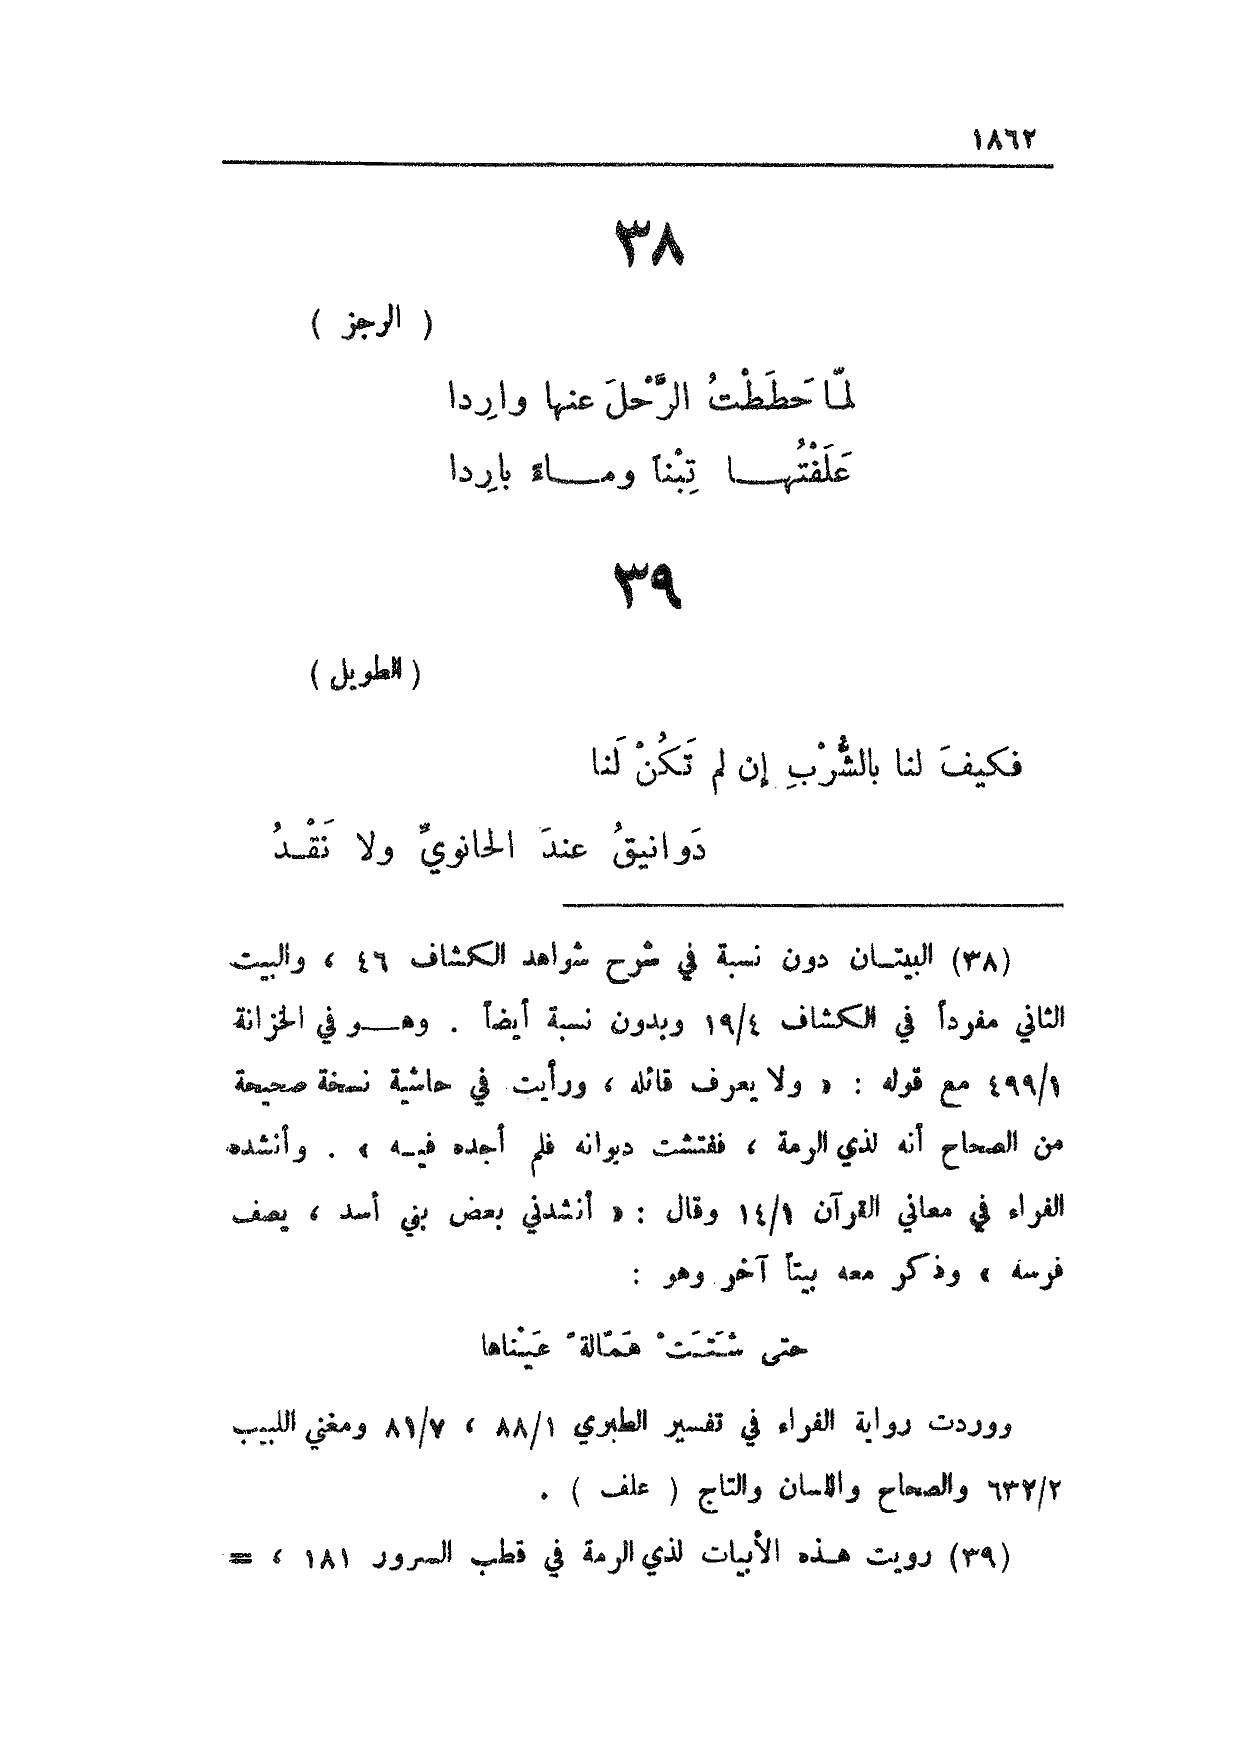 ١٨٦٢
٣٨
( الرجز )
لمّا حَطَطْتُ الرَّحْلَ عنها وارِدا
عَلَفْتُهـا تِبْناً ومـاءً بارِدا
٣٩
( الطويل )
فكيفَ لنا بالشُّرْبِ إن لم تَكُنْ لَنا
دَوانيقُ عندَ الحانويِّ ولا نَقْـدُ
(٣٨) البيتـان دون نسبة في شرح شواهد الكشاف ٤٦ ، والبيت
الثاني مفرداً في الكشاف ١٩/٤ وبدون نسبة أيضاً . وهـو في الخزانة
٤٩٩/١ مع قوله : « ولا يعرف قائله ، ورأيت في حاشية نسخة صحيحة
من الصحاح أنه لذي الرمة ، ففتشت ديوانه فلم أجده فيـه » . وأنشده
الفراء في معاني القرآن ١٤/١ وقال : « أنشدني بعض بني أسد ، يصف
فرسه » وذكر معه بيتاً آخر وهو :
حتى شَتَتْ هَمّالةً عَيْناها
ووردت رواية الفراء في تفسير الطبري ٨٨/١ ، ٨١/٧ ومغني اللبيب
٦٣٢/٢ والصحاح واللسان والتاج ( علف ) .
(٣٩) رويت هـذه الأبيات لذي الرمة في قطب السرور ١٨١ ، =